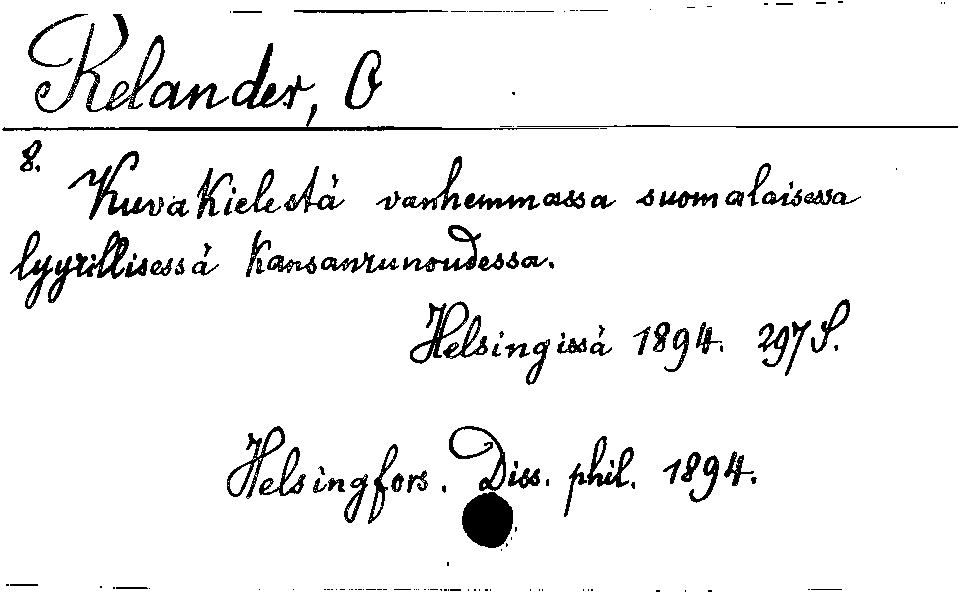 Relander, O
8.
Kuvakielestä vanhemmassa suomalaisessa
lyyrillisessä kansanrunoudessa.
Helsingissä 1894. 297 S.
Helsingfors. Diss. phil. 1894.